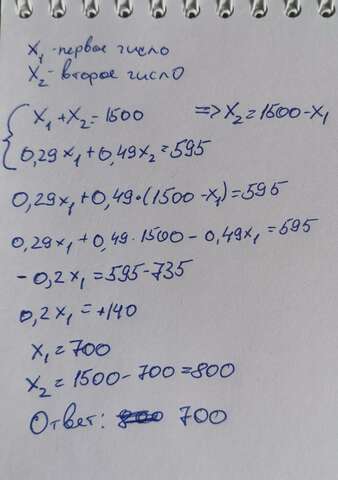 x₁ - первое число
x₂ - второе число
{ x₁ + x₂ = 1500 => x₂ = 1500 - x₁
0,29x₁ + 0,49x₂ = 595
0,29x₁ + 0,49·(1500 - x₁) = 595
0,29x₁ + 0,49·1500 - 0,49x₁ = 595
- 0,2x₁ = 595 - 735
0,2x₁ = +140
x₁ = 700
x₂ = 1500 - 700 = 800
Ответ: 700